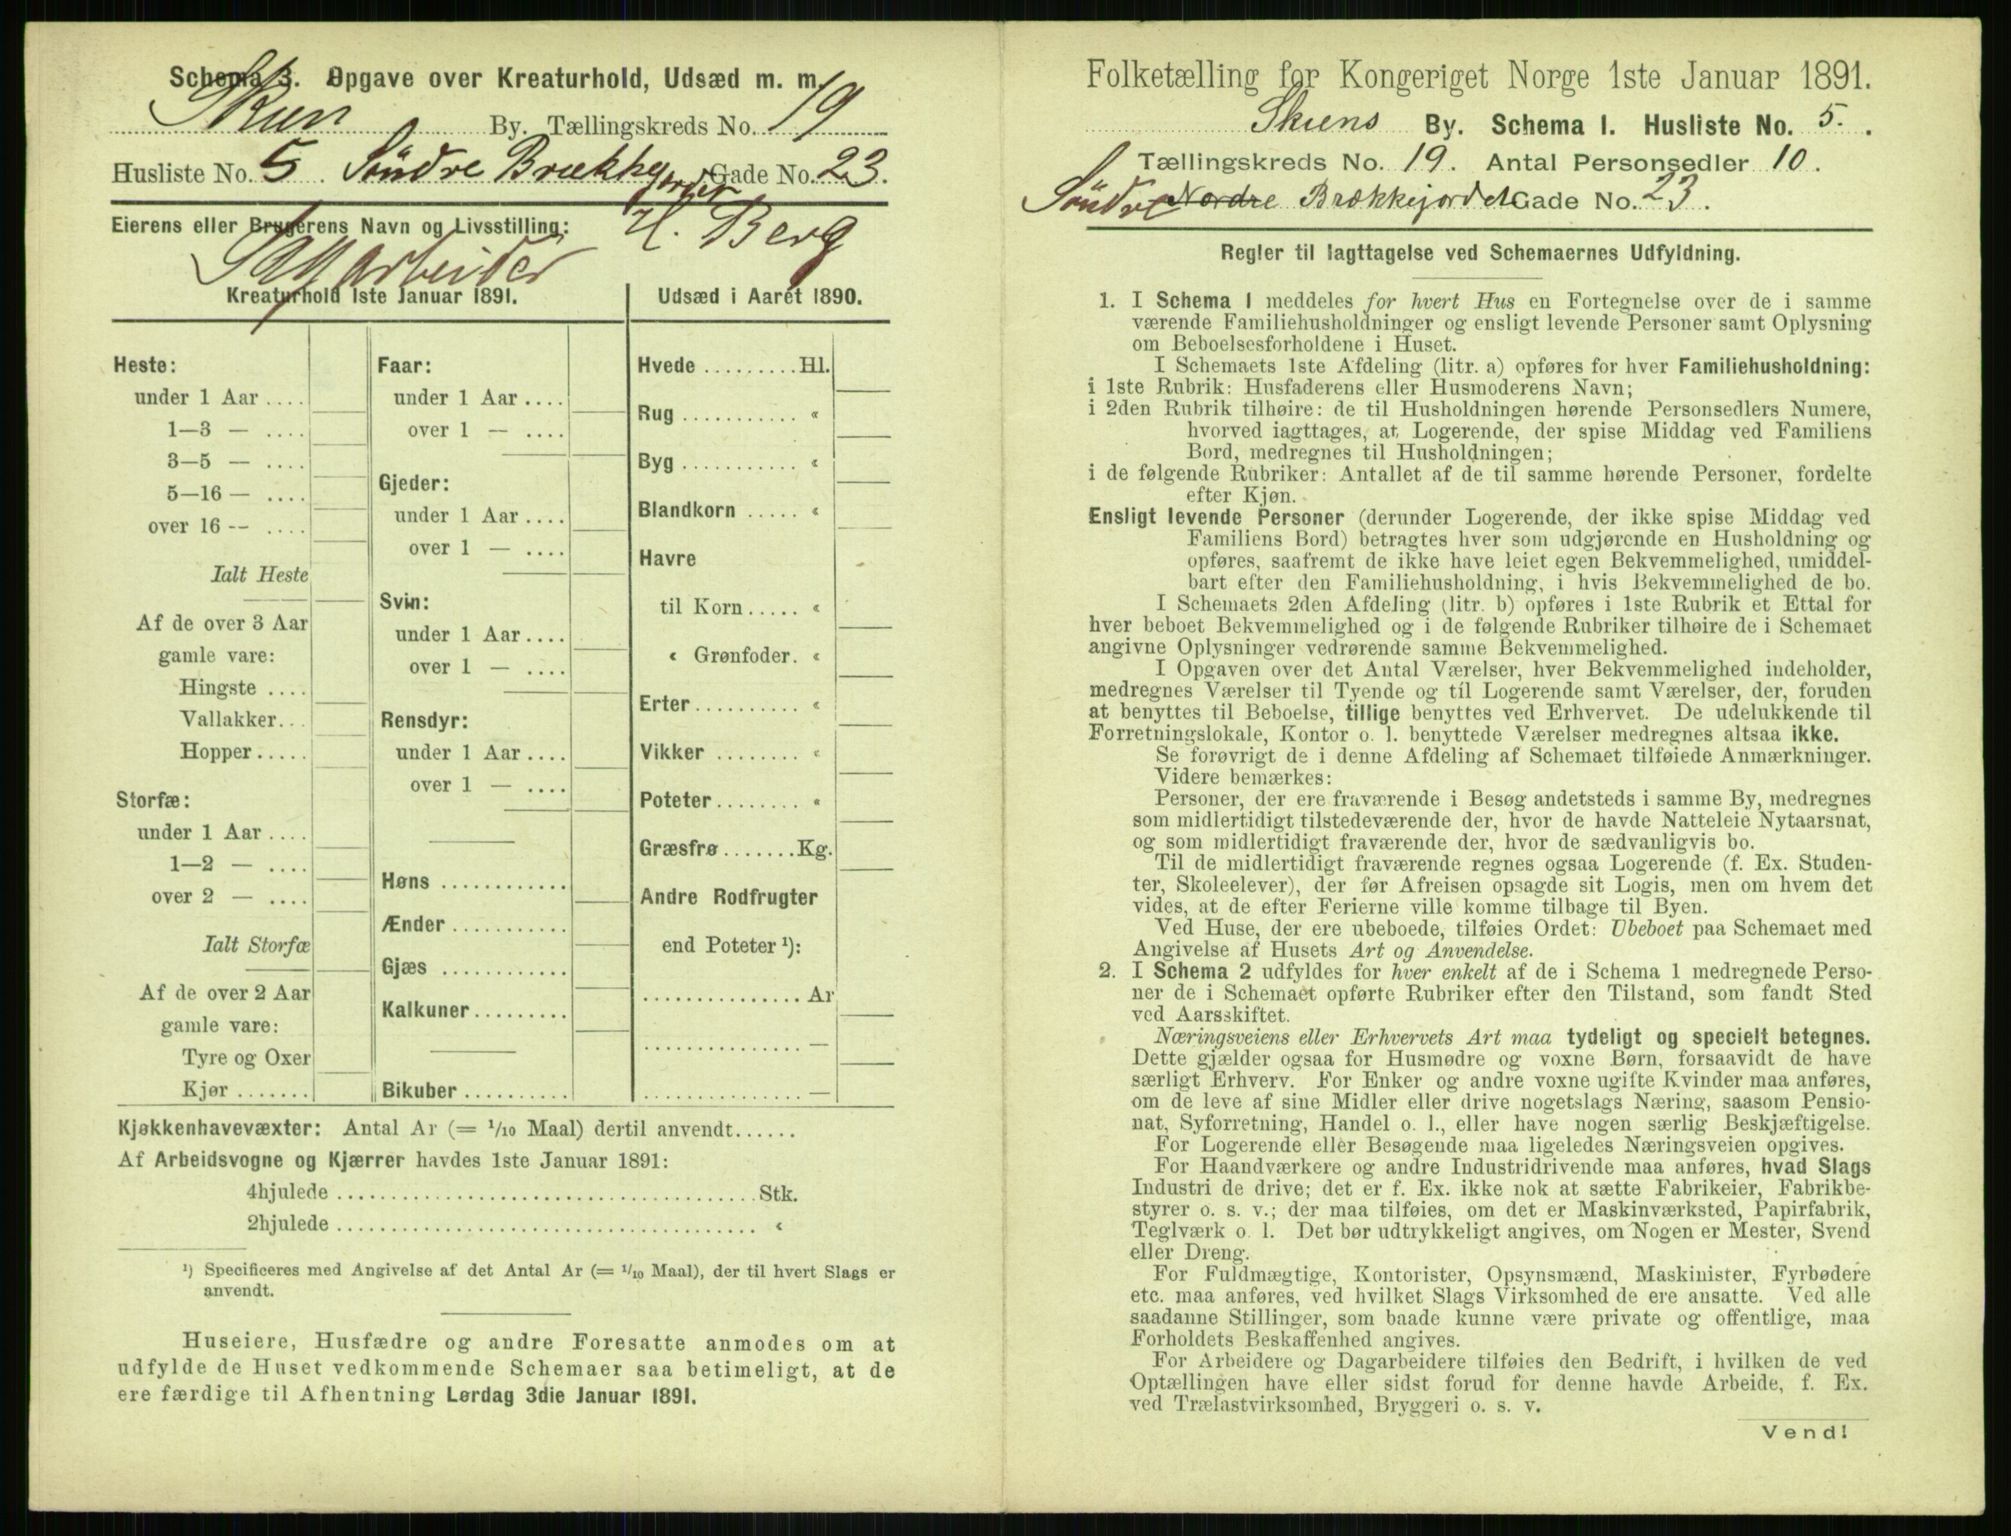 Schema 3. Opgave over Kreaturhold, Udsæd m. m.
Skien By. Tællingskreds No. 19
Husliste No. 5. Söndre Brækkejordet Gade No. 23.
Eierens eller Brugerens Navn og Livsstilling: H. Berg
Sagarbeider
Kreaturhold 1ste Januar 1891.
Heste:
under 1 Aar ....
1—3 — ....
3—5 — ....
5—16 — ....
over 16 -- ....
Ialt Heste
Af de over 3 Aar
gamle vare:
Hingste ....
Vallakker...
Hopper.....
Storfæ:
under 1 Aar ....
1—2 — ....
over 2 — ....
Ialt Storfæ
Af de over 2 Aar
gamle vare:
Tyre og Oxer
Kjør .......
Faar:
under 1 Aar ....
over 1 — ....
Gjeder:
under 1 Aar ....
over 1 — ....
Svin:
under 1 Aar ....
over 1 — ....
Rensdyr:
under 1 Aar ....
over 1 — ....
Høns ............
Ænder ...........
Gjæs ............
Kalkuner.........
Bikuber ..........
Udsæd i Aaret 1890.
Hvede .........Hl.
Rug ........... «
Byg ........... «
Blandkorn ..... «
Havre
til Korn..... «
« Grønfoder. «
Erter.......... «
Vikker ........ «
Poteter........ «
Græsfrø.......Kg.
Andre Rodfrugter
end Poteter ¹):
............... Ar
............... —
............... —
Kjøkkenhavevæxter: Antal Ar (= 1/10 Maal) dertil anvendt......
Af Arbeidsvogne og Kjærrer havdes 1ste Januar 1891:
4hjulede ........................................Stk.
2hjulede ........................................ «
¹) Specificeres med Angivelse af det Antal Ar (= 1/10 Maal), der til hvert Slags er
anvendt.
Huseiere, Husfædre og andre Foresatte anmodes om at
udfylde de Huset vedkommende Schemaer saa betimeligt, at de
ere færdige til Afhentning Lørdag 3die Januar 1891.
Folketælling for Kongeriget Norge 1ste Januar 1891.
Skiens By. Schema I. Husliste No. 5.
Tællingskreds No. 19. Antal Personsedler 10.
Söndre Nordre Brækkejordet Gade No. 23.
Regler til Iagttagelse ved Schemaernes Udfyldning.
1. I Schema I meddeles for hvert Hus en Fortegnelse over de i samme
værende Familiehusholdninger og ensligt levende Personer samt Oplysning
om Beboelsesforholdene i Huset.
I Schemaets 1ste Afdeling (litr. a) opføres for hver Familiehusholdning:
i 1ste Rubrik: Husfaderens eller Husmoderens Navn;
i 2den Rubrik tilhøire: de til Husholdningen hørende Personsedlers Numere,
hvorved iagttages, at Logerende, der spise Middag ved Familiens
Bord, medregnes til Husholdningen;
i de følgende Rubriker: Antallet af de til samme hørende Personer, fordelte
efter Kjøn.
Ensligt levende Personer (derunder Logerende, der ikke spise Middag ved
Familiens Bord) betragtes hver som udgjørende en Husholdning og
opføres, saafremt de ikke have leiet egen Bekvemmelighed, umiddel-
bart efter den Familiehusholdning, i hvis Bekvemmelighed de bo.
I Schemaets 2den Afdeling (litr. b) opføres i 1ste Rubrik et Ettal for
hver beboet Bekvemmelighed og i de følgende Rubriker tilhøire de i Schemaet
angivne Oplysninger vedrørende samme Bekvemmelighed.
I Opgaven over det Antal Værelser, hver Bekvemmelighed indeholder,
medregnes Værelser til Tyende og til Logerende samt Værelser, der, foruden
at benyttes til Beboelse, tillige benyttes ved Erhvervet. De udelukkende til
Forretningslokale, Kontor o. l. benyttede Værelser medregnes altsaa ikke.
Se forøvrigt de i denne Afdeling af Schemaet tilføiede Anmærkninger.
Videre bemærkes:
Personer, der ere fraværende i Besøg andetsteds i samme By, medregnes
som midlertidigt tilstedeværende der, hvor de havde Natteleie Nytaarsnat,
og som midlertidigt fraværende der, hvor de sædvanligvis bo.
Til de midlertidigt fraværende regnes ogsaa Logerende (f. Ex. Studen-
ter, Skoleelever), der før Afreisen opsagde sit Logis, men om hvem det
vides, at de efter Ferierne ville komme tilbage til Byen.
Ved Huse, der ere ubeboede, tilføies Ordet: Ubeboet paa Schemaet med
Angivelse af Husets Art og Anvendelse.
2. I Schema 2 udfyldes for hver enkelt af de i Schema 1 medregnede Perso-
ner de i Schemaet opførte Rubriker efter den Tilstand, som fandt Sted
ved Aarsskiftet.
Næringsveiens eller Erhvervets Art maa tydeligt og specielt betegnes.
Dette gjælder ogsaa for Husmødre og voxne Børn, forsaavidt de have
særligt Erhverv. For Enker og andre voxne ugifte Kvinder maa anføres,
om de leve af sine Midler eller drive nogetslags Næring, saasom Pensio-
nat, Syforretning, Handel o. l., eller have nogen særlig Beskjæftigelse.
For Logerende eller Besøgende maa ligeledes Næringsveien opgives.
For Haandværkere og andre Industridrivende maa anføres, hvad Slags
Industri de drive; det er f. Ex. ikke nok at sætte Fabrikeier, Fabrikbe-
styrer o. s. v.; der maa tilføies, om det er Maskinværksted, Papirfabrik,
Teglværk o. l. Det bør udtrykkeligt angives, om Nogen er Mester, Svend
eller Dreng.
For Fuldmægtige, Kontorister, Opsynsmænd, Maskinister, Fyrbødere
etc. maa anføres, ved hvilket Slags Virksomhed de ere ansatte. Ved alle
saadanne Stillinger, som baade kunne være private og offentlige, maa
Forholdets Beskaffenhed angives.
For Arbeidere og Dagarbeidere tilføies den Bedrift, i hvilken de ved
Optællingen have eller sidst forud for denne havde Arbeide, f. Ex.
ved Trælastvirksomhed, Bryggeri o. s. v.
Vend!